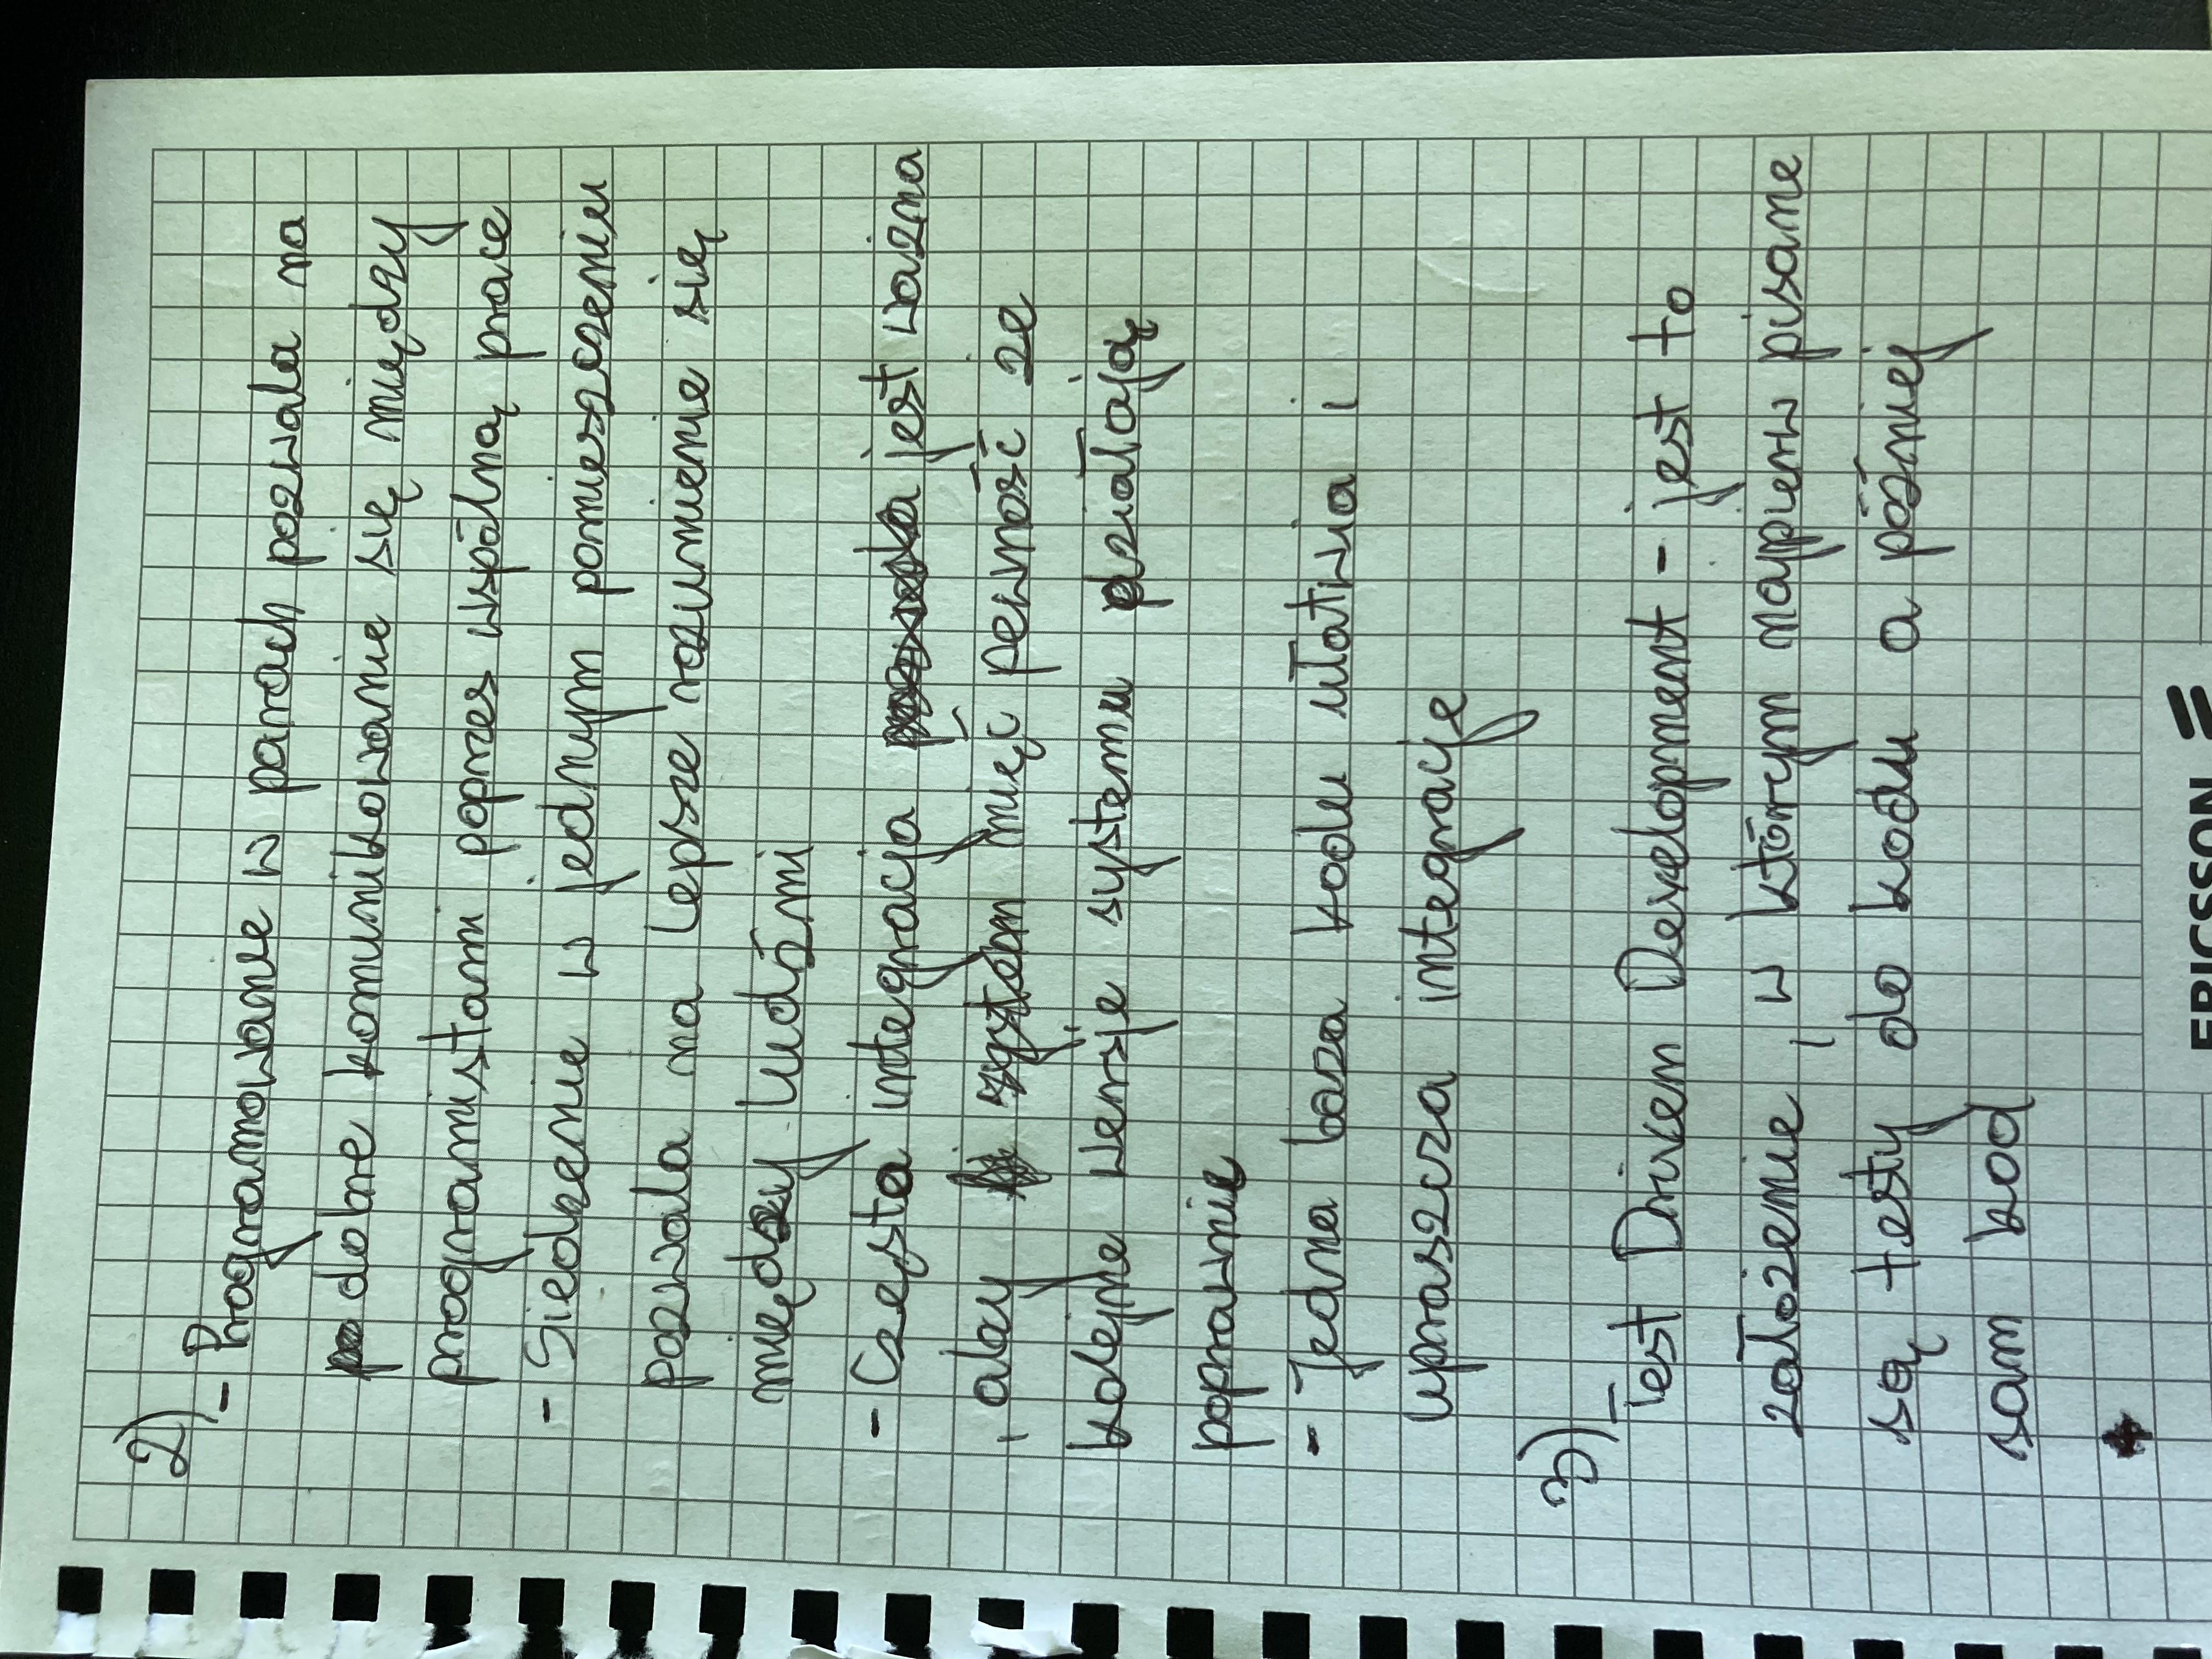 2)
- Programowanie w parach pozwala na
dobre komunikowanie się między
programistami poprzes wspólną prace
- Siedzenie w jednym pomieszczeniu
pozwala na lepsze rozumienie się
między ludźmi
- Częsta integracja jest ważna
, aby system mięć pewność ze
kolejne wersje systemu działają
poprawnie
- Jedna baza kodu ułatwia i
upraszcza integracje
3)
Test Driven Development - jest to
założenie, w którym najpierw pisane
są testy do kodu a później
sam kod
ERICSSON